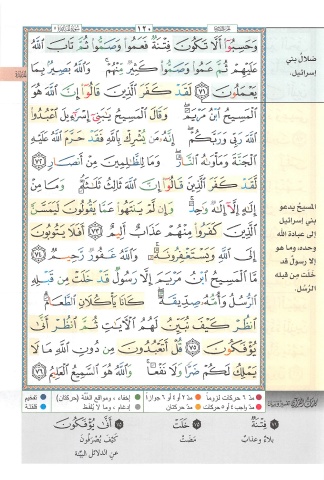 ١٢٠
وَحَسِبُوٓا۟ أَلَّا تَكُونَ فِتْنَةٌ فَعَمُوا۟ وَصَمُّوا۟ ثُمَّ تَابَ ٱللَّهُ
عَلَيْهِمْ ثُمَّ عَمُوا۟ وَصَمُّوا۟ كَثِيرٌ مِّنْهُمْ ۚ وَٱللَّهُ بَصِيرٌۢ بِمَا
يَعْمَلُونَ ٧١ لَقَدْ كَفَرَ ٱلَّذِينَ قَالُوٓا۟ إِنَّ ٱللَّهَ هُوَ
ٱلْمَسِيحُ ٱبْنُ مَرْيَمَ ۖ وَقَالَ ٱلْمَسِيحُ يَـٰبَنِىٓ إِسْرَٰٓءِيلَ ٱعْبُدُوا۟
ٱللَّهَ رَبِّى وَرَبَّكُمْ ۖ إِنَّهُۥ مَن يُشْرِكْ بِٱللَّهِ فَقَدْ حَرَّمَ ٱللَّهُ عَلَيْهِ
ٱلْجَنَّةَ وَمَأْوَىٰهُ ٱلنَّارُ ۖ وَمَا لِلظَّـٰلِمِينَ مِنْ أَنصَارٍ ٧٢
لَّقَدْ كَفَرَ ٱلَّذِينَ قَالُوٓا۟ إِنَّ ٱللَّهَ ثَالِثُ ثَلَـٰثَةٍ ۘ وَمَا مِنْ
إِلَـٰهٍ إِلَّآ إِلَـٰهٌ وَٰحِدٌ ۚ وَإِن لَّمْ يَنتَهُوا۟ عَمَّا يَقُولُونَ لَيَمَسَّنَّ
ٱلَّذِينَ كَفَرُوا۟ مِنْهُمْ عَذَابٌ أَلِيمٌ ٧٣ أَفَلَا يَتُوبُونَ
إِلَى ٱللَّهِ وَيَسْتَغْفِرُونَهُۥ ۚ وَٱللَّهُ غَفُورٌ رَّحِيمٌ ٧٤
مَّا ٱلْمَسِيحُ ٱبْنُ مَرْيَمَ إِلَّا رَسُولٌ قَدْ خَلَتْ مِن قَبْلِهِ
ٱلرُّسُلُ وَأُمُّهُۥ صِدِّيقَةٌ ۖ كَانَا يَأْكُلَانِ ٱلطَّعَامَ ۗ
ٱنظُرْ كَيْفَ نُبَيِّنُ لَهُمُ ٱلْـَٔايَـٰتِ ثُمَّ ٱنظُرْ أَنَّىٰ
يُؤْفَكُونَ ٧٥ قُلْ أَتَعْبُدُونَ مِن دُونِ ٱللَّهِ مَا لَا
يَمْلِكُ لَكُمْ ضَرًّا وَلَا نَفْعًا ۚ وَٱللَّهُ هُوَ ٱلسَّمِيعُ ٱلْعَلِيمُ ٧٦
ضلالُ بني
إسرائيل.
المسيحُ يدعو
بني إسرائيل
إلى عبادة الله
وحده، وما هو
إلا رسولٌ قد
خَلَت من قبله
الرُّسُل.
مدّ ٦ حركات لزوماً مدّ ٢ أو ٤ أو ٦ جوازاً إخفاء، ومواقع الغُنَّة (حركتان) تفخيم
مدّ واجب ٤ أو ٥ حركات مدّ حركتان إدغام، وما لا يُلفَظ قلقلة
٧١ فِتْنَةٌ
بلاءٌ وعذابٌ
٧٥ خَلَتْ
مَضَتْ
٧٥ أَنَّىٰ يُؤْفَكُونَ
كَيْفَ يُصْرَفُونَ
عن الدلائلِ البيّنة